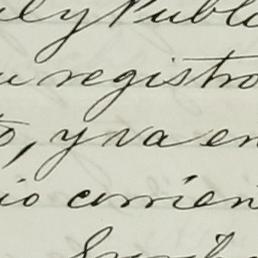 y Publ
registro
, y va en
io corrien